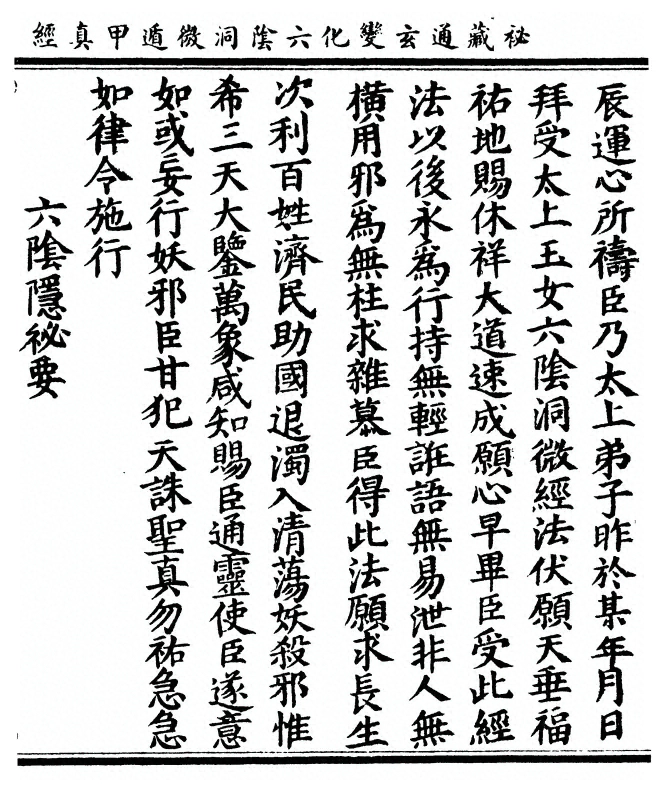 祕藏通玄變化六陰洞微遁甲真經
辰運心所禱臣乃太上弟子昨於某年月日
拜受太上玉女六陰洞微經法伏願天垂福
祐地賜休祥大道速成願心早畢臣受此經
法以後永為行持無輕誑語無易泄非人無
橫用邪為無枉求雜慕臣得此法願求長生
次利百姓濟民助國退濁入清蕩妖殺邪惟
希三天大鑒萬象咸知賜臣通靈使臣遂意
如或妄行妖邪臣甘犯天誅聖真勿祐急急
如律令施行
六陰隱祕要